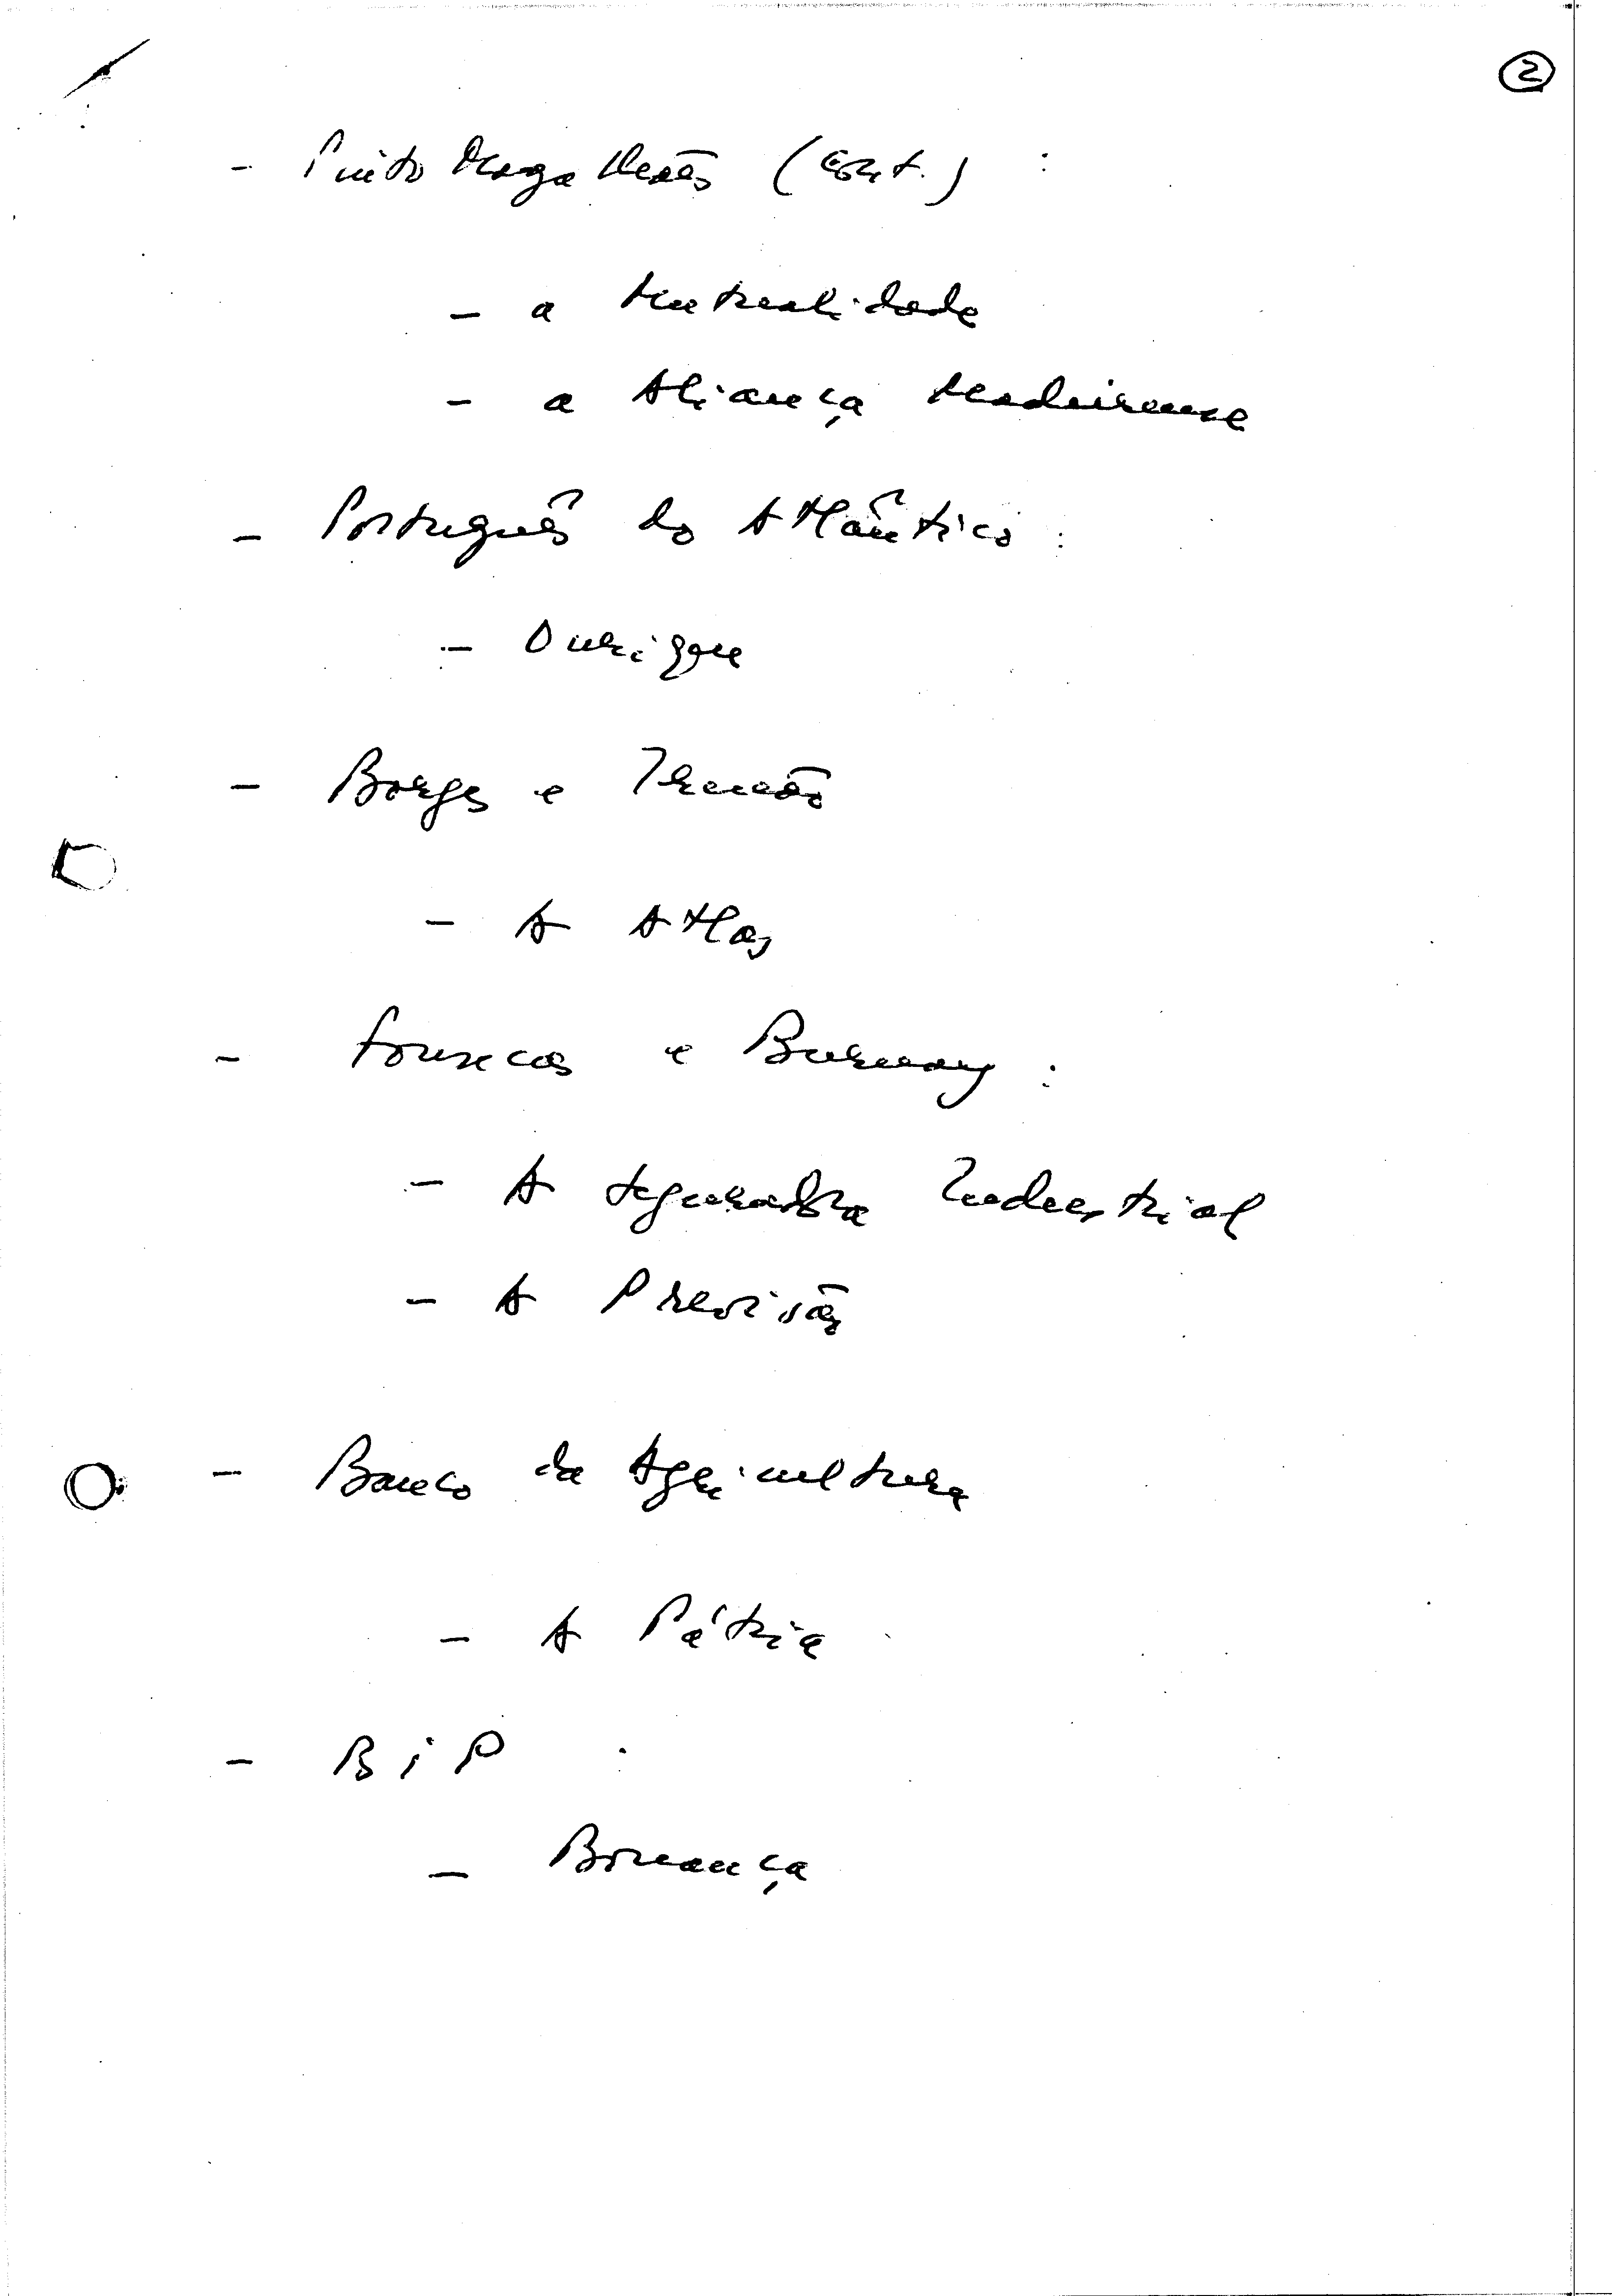 2
- Pinto Magalhães (Cont.) :
- a Mutualidade
- a Aliança Madeirense
- Português do Atlântico :
- Ourique
- Borges e Irmão
- A Atlas
- Fonsecas e Burnay :
- A Seguradora Industrial
- A Previsão
- Banco da Agricultura
- A Pátria
- BiP :
- Bonança